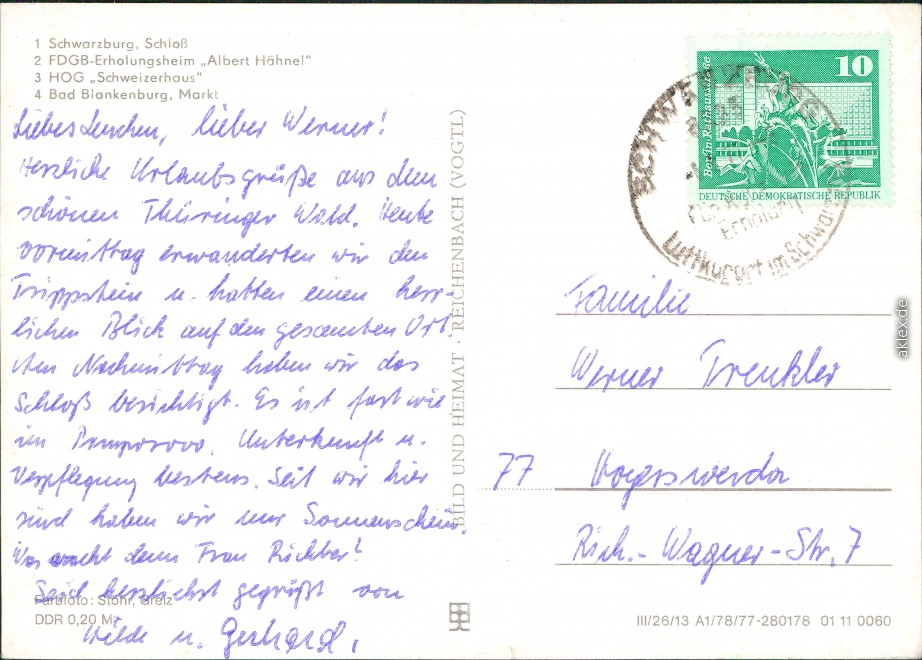 1 Schwarzburg, Schloß
2 FDGB-Erholungsheim „Albert Hähnel"
3 HOG „Schweizerhaus"
4 Bad Blankenburg, Markt
Liebes Lenchen, lieber Werner!
Herzliche Urlaubsgrüße aus dem
schönen Thüringer Wald. Heute
vormittag erwanderten wir den
Trippstein u. hatten einen herr-
lichen Blick auf den gesamten Ort.
Am Nachmittag haben wir das
Schloß besichtigt. Es ist fast wie
im Pamporovo. Unterkunft u.
Verpflegung bestens. Seit wir hier
sind haben wir nur Sonnenschein.
Was macht denn Frau Richter?
Seid herzlichst gegrüßt von
Hilde u. Gerhard.
Farbfoto: Stöhr, Greiz
DDR 0,20 M
BILD UND HEIMAT · REICHENBACH (VOGTL)
10
Berlin Rathausstraße
DEUTSCHE DEMOKRATISCHE REPUBLIK
SCHWARZBURG
Erholung
Luftkurort im Schwarza
Familie
Werner Trenkler
77 Hoyerswerda
Rich.-Wagner-Str. 7
III/26/13 A1/78/77-280178 01 11 0060
aklex.de